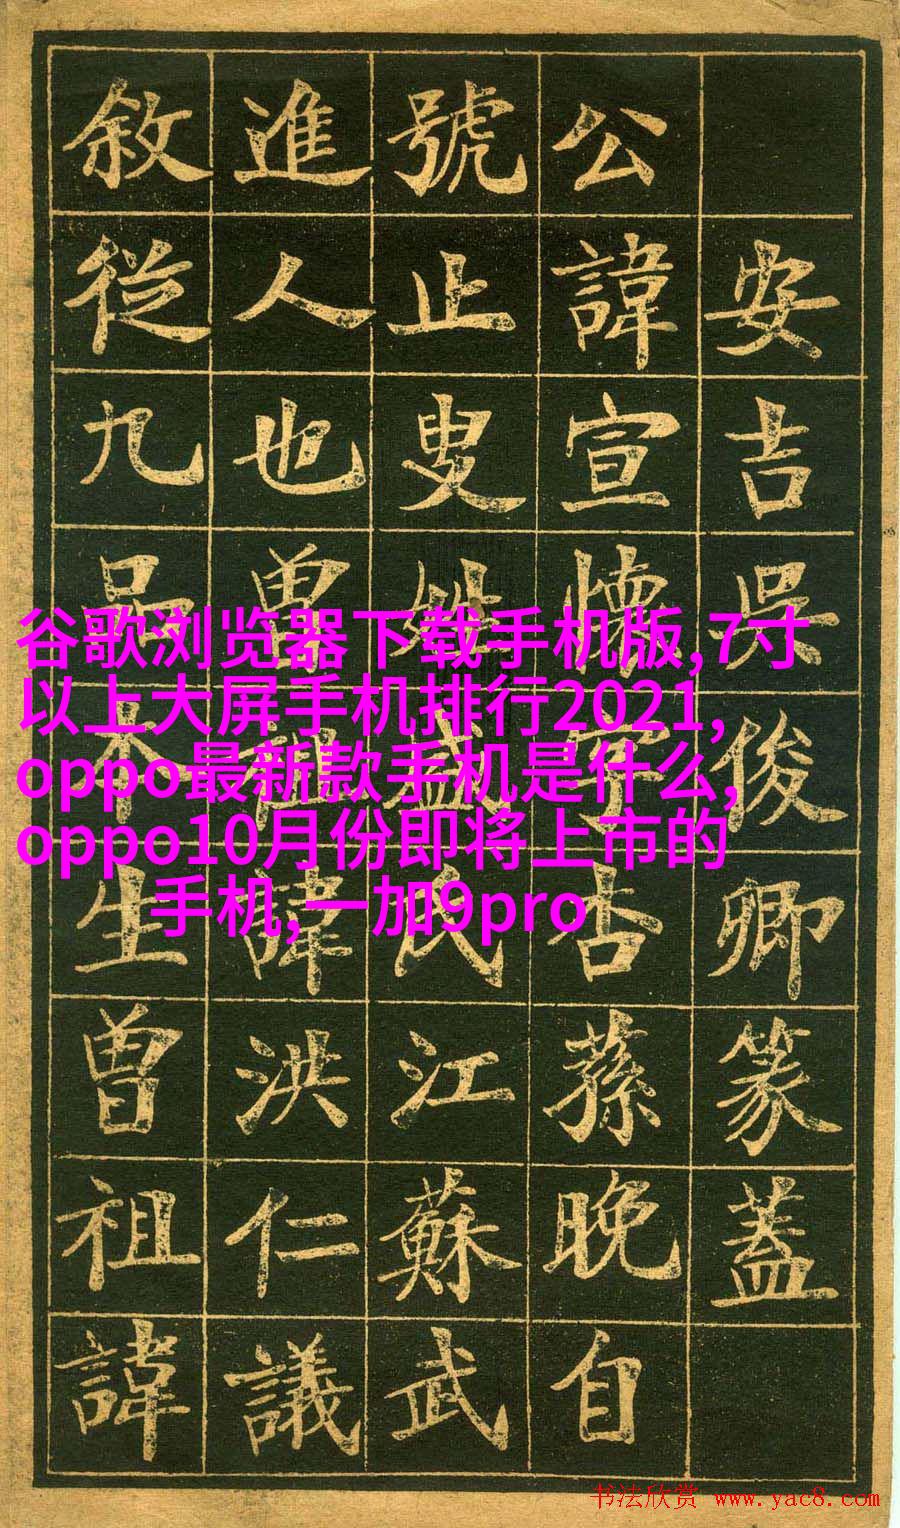 安吉吳俊卿篆蓋
公諱宣懷字杏蓀晚自
號止叟姓盛氏江蘇武
進人也曾祖諱洪仁議
敘從九品本生曾祖諱
谷歌浏览器下载手机版,7寸
以上大屏手机排行2021,
oppo最新款手机是什么,
oppo10月份即将上市的
手机,一加9pro
书法欣赏 www.yac8.com